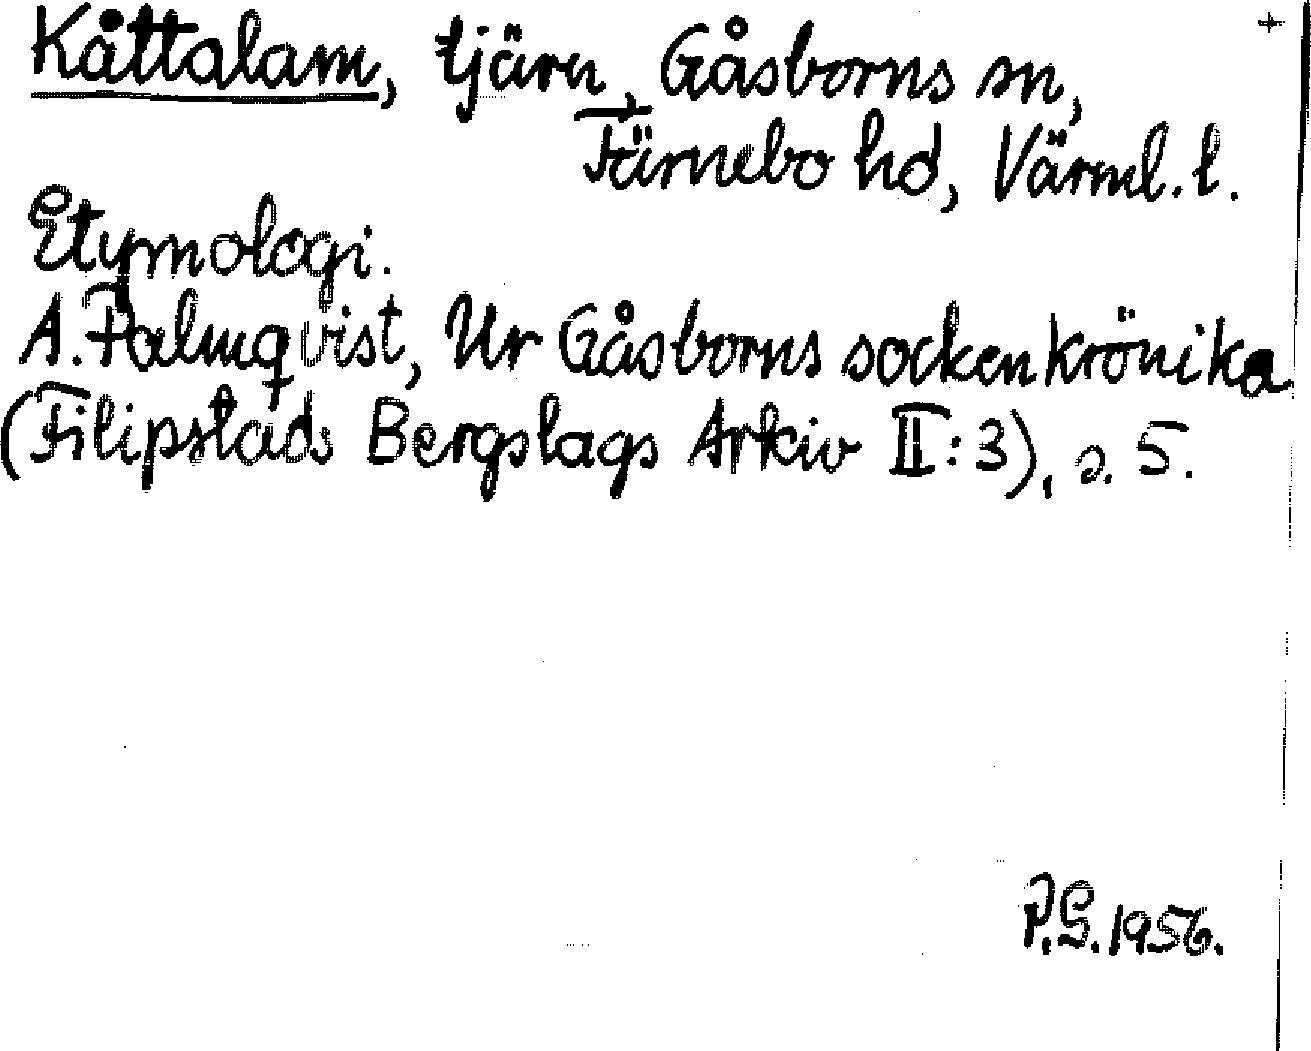 Kåttalam, tjärn, Gåsborns sn, +
Färnebo hd, Värml. l.
Etymologi.
A. Palmqvist, Ur Gåsborns sockenkrönika
(Filipstads Bergslags Arkiv II:3), s. 5.
P.G. 1956.